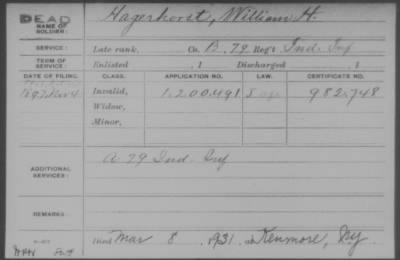 DEAD
NAME OF SOLDIER: Hagerhorst, William H.
SERVICE: Late rank, Co. B, 79 Reg't Ind. Inf
TERM OF SERVICE: Enlisted , 1 Discharged , 1
DATE OF FILING. CLASS. APPLICATION NO. LAW. CERTIFICATE NO.
1897 Nov 4 Invalid, 1.200.491 982.748
Widow,
Minor,
ADDITIONAL SERVICES: A 79 Ind. Inf
REMARKS:
Died Mar 8, 1931, at Kenmore,